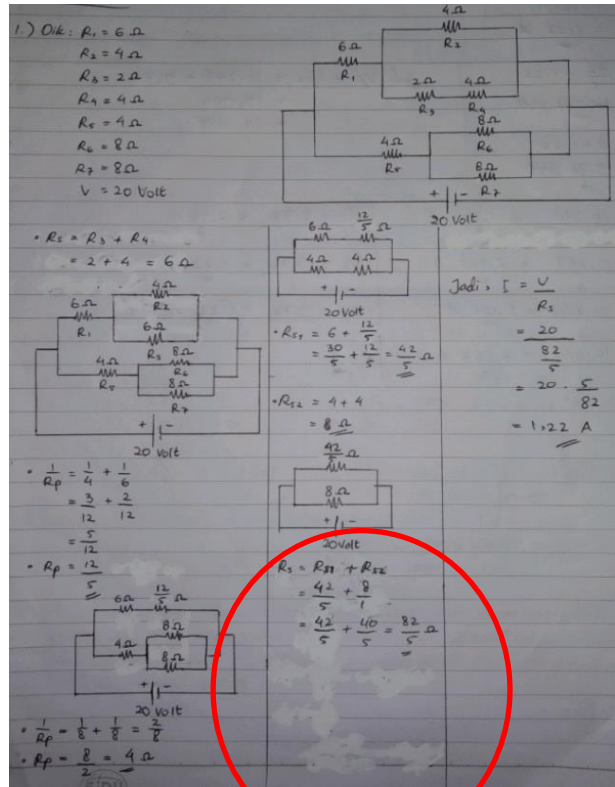 1.) Dik : R₁ = 6 Ω
R₂ = 4 Ω
R₃ = 2 Ω
R₄ = 4 Ω
R₅ = 4 Ω
R₆ = 8 Ω
R₇ = 8 Ω
V = 20 Volt
4Ω
R₂
6Ω
R₁
2Ω 4Ω
R₃ R₄
8Ω
R₆
4Ω
R₅
8Ω
R₇
+ -
20 Volt
• Rs = R₃ + R₄
= 2 + 4 = 6 Ω
4Ω
R₂
6Ω
R₁
6Ω
Rs
8Ω
R₆
4Ω
R₅
8Ω
R₇
+ -
20 Volt
• 1/Rp = 1/4 + 1/6
= 3/12 + 2/12
= 5/12
• Rp = 12/5
6Ω 12/5 Ω
8Ω
4Ω
8Ω
+ -
20 Volt
• 1/Rp = 1/8 + 1/8 = 2/8
• Rp = 8/2 = 4 Ω
6Ω 12/5 Ω
4Ω 4Ω
+ -
20 Volt
• Rs₁ = 6 + 12/5
= 30/5 + 12/5 = 42/5 Ω
• Rs₂ = 4 + 4
= 8 Ω
42/5 Ω
8Ω
+ -
20 Volt
Rs = Rs₁ + Rs₂
= 42/5 + 8/1
= 42/5 + 40/5 = 82/5 Ω
Jadi, I = V/Rs
= 20/(82/5)
= 20 . 5/82
= 1,22 A